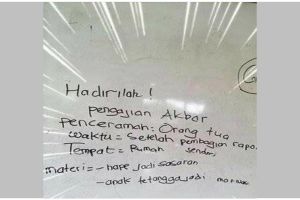 Hadirilah !
pengajian Akbar
penceramah: Orang tua
waktu = Setelah pembagian rapo.
Tempat = Rumah sendiri
materi = - hape jadi sasaran
- anak tetangga jadi